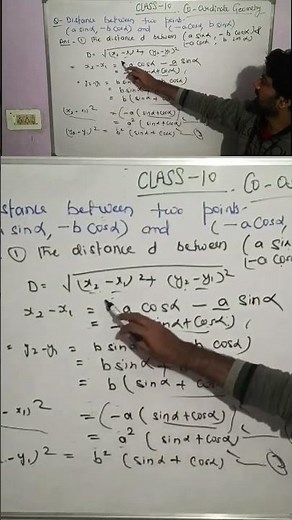 CLASS-10 Co-ordinate Geometry
Q- Distance between two points
(a sinα, -b cosα) and (-a cosα, b sinα)
Ans- ① The distance d between (a sinα, -b cosα) &
(-a cosα, b sinα)
D = √(x₂-x₁)²+(y₂-y₁)²
x₂-x₁ = -a cosα - a sinα
sinα+cosα)
y₂-y₁ = b sinα cosα)
= b sinα
= b (sinα + cosα)
(x₂-x₁)² = (-a (sinα+cosα)
= a² (sinα+cosα)
(y₂-y₁)² = b² (sinα + cosα)
CLASS-10. Co-o
stance between two points-
sinα, -b cosα) and (-a cosα,
① The distance d between (a sin
(-a cos
D = √(x₂-x₁)²+(y₂-y₁)²
x₂-x₁ = a cosα - a sinα
= sinα+cosα)
= y₂-y₁ = b sin b cosα)
= b sinα
= b (sinα + cosα)
-x₁)² = (-a (sinα+cosα)
= a² (sinα+cosα)
-y₁)² = b² (sinα + cosα)